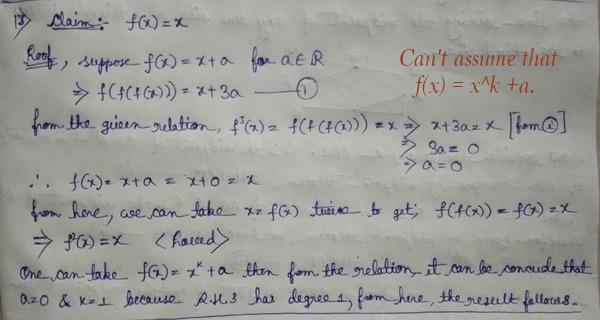 13) Claim:- f(x) = x
Proof, suppose f(x) = x + a for a ∈ ℝ
Can't assume that
f(x) = x^k +a.
⇒ f(f(f(x))) = x + 3a —— ①
from the given relation, f³(x) = f(f(f(x))) = x ⇒ x + 3a = x [from ①]
⇒ 3a = 0
⇒ a = 0
∴ f(x) = x + a = x + 0 = x
from here, we can take x = f(x) to get; f(f(x)) = f(x) = x
⇒ f²(x) = x <Proved>
One can take f(x) = xᵏ + a then from the relation, it can be concude that
a=0 & k=1 because R.H.S has degree 1, from here, the result follows.